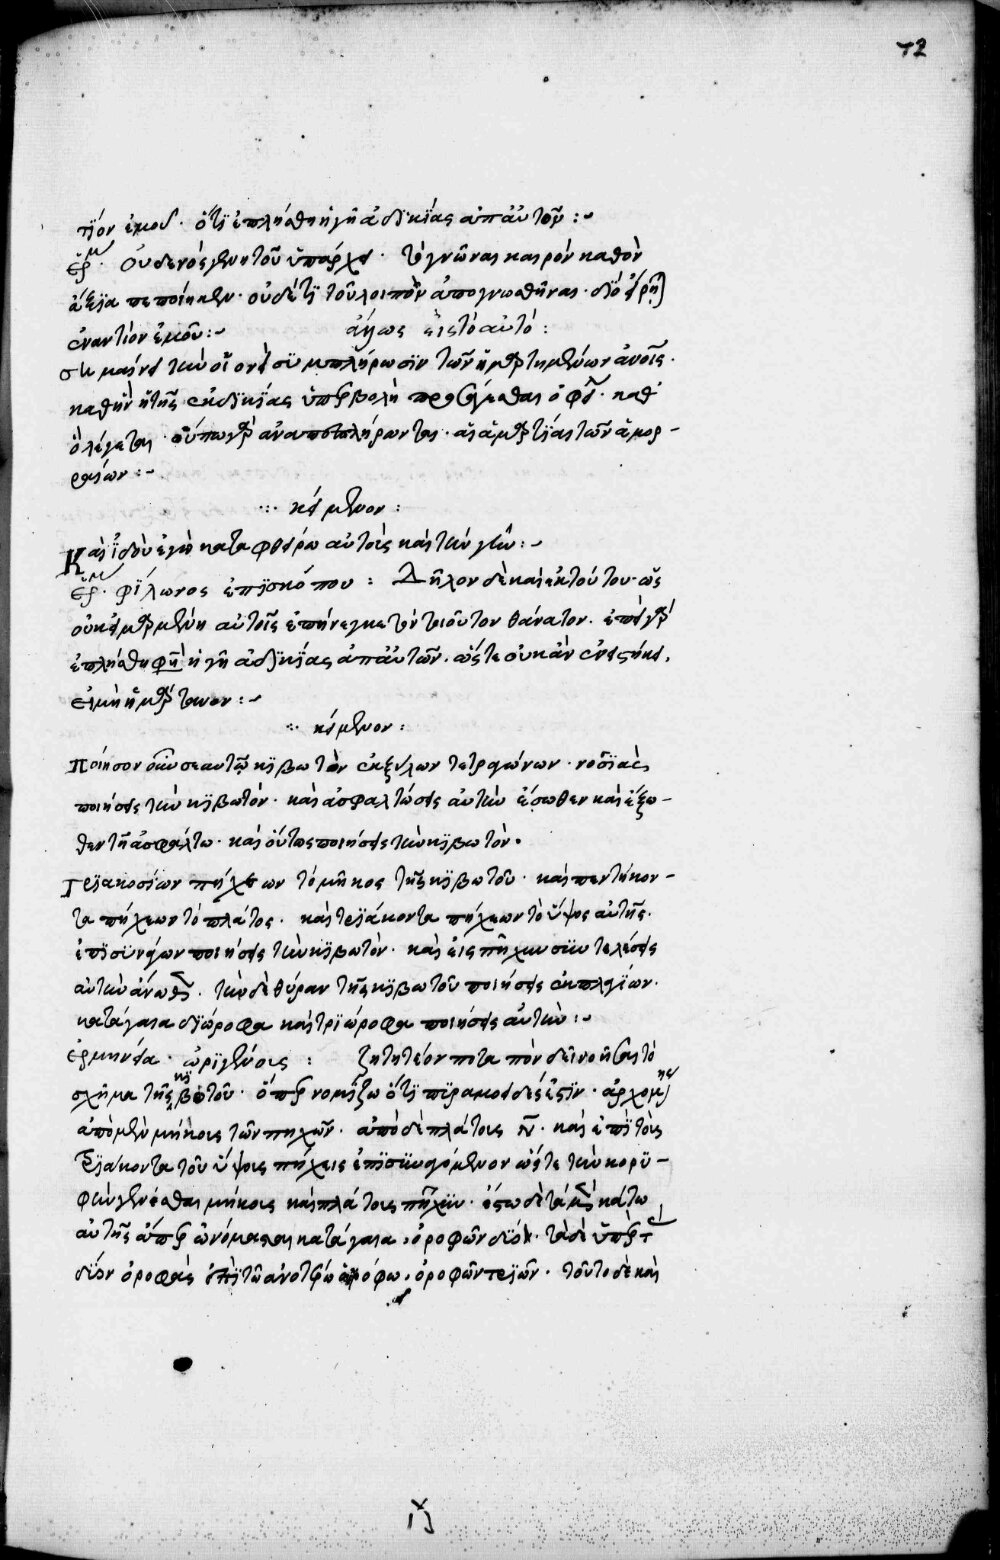 72
τίον ἐμοῦ· ὅτι ἐπλήσθη ἡ γῆ ἀδικίας ἀπ' αὐτῶν :~
ἑρμ· οὐδενὸς γενητοῦ ὑπάρχει· τὸ γνῶναι καιρὸν καθ' ὃν
ἄξια πεποίηκεν· οὐδέ τι τοῦ λοιποῦ ἀπογνωσθῆναι· διὸ
ἐναντίον ἐμοῦ :~ ἄλλως εἰς τὸ αὐτό :
σημαίνει τὴν οἱονεὶ συμπλήρωσιν τῶν ἡμαρτημένων ἀνοις·
καθ' ἣν ἡ τῆς ἐκδικίας ὑπερβολὴ
ὃ λέγεται· οὔπω γὰρ ἀναπεπλήρωνται· αἱ ἁμαρτίαι τῶν ἀμορ-
ραίων :~
κείμενον :
Καὶ ἰδοὺ ἐγὼ καταφθείρω αὐτοὺς καὶ τὴν γῆν :~
ἑρμ· φίλωνος ἐπισκόπου : Δῆλον δὲ καὶ ἐκ τούτου· ὡς
οὐχ εἱμαρμένη αὐτοῖς ἐπήνεγκε τὸν τοιοῦτον θάνατον. ἐπεὶ γὰρ
ἐπλήσθη φησὶ ἡ γῆ ἀδικίας ἀπ' αὐτῶν. ὥστε οὐκ ἂν
εἰ μὴ ἡμάρτανον :~
κείμενον :
Ποίησον οὖν σεαυτῷ κιβωτὸν ἐκ ξύλων τετραγώνων· νοσσιὰς
ποιήσεις τὴν κιβωτόν· καὶ ἀσφαλτώσεις αὐτὴν ἔσωθεν καὶ ἔξω-
θεν τῇ ἀσφάλτω· καὶ οὕτως ποιήσεις τὴν κιβωτόν.
Τριακοσίων πήχεων τὸ μῆκος τῆς κιβωτοῦ· καὶ πεντήκον-
τα πήχεων τὸ πλάτος· καὶ τριάκοντα πήχεων τὸ ὕψος αὐτῆς·
ἐπισυνάγων ποιήσεις τὴν κιβωτόν· καὶ εἰς πῆχυν συντελέσεις
αὐτὴν ἄνωθεν. τὴν δὲ θύραν τῆς κιβωτοῦ ποιήσεις ἐκ πλαγίων.
κατάγαια διώροφα καὶ τριώροφα ποιήσεις αὐτήν :~
ἑρμηνεία· ὠριγένους : ζητητέον ποταπὸν δεῖ νοῆσαι τὸ
σχῆμα τῆς κιβωτοῦ· ὅπερ νομίζω ὅτι πυραμοειδές ἐστιν· ἀρχομένης
ἀπὸ μὲν μήκους τῶν πηχῶν· ἀπὸ δὲ πλάτους ν· καὶ ἐπὶ τοὺς
τριάκοντα τοῦ ὕψους πήχεις ἐπισυναγόμενον ὥστε τὴν κορυ-
φὴν γενέσθαι μήκους καὶ πλάτους πῆχυν· ἔσω δὲ τὰ μὲν κάτω
αὐτῆς ἅπερ ὠνόμασται κατάγαια, ὀροφῶν δύο· τὰ δὲ ὑπὲρ τ
δύον ὀροφὰς ἐπὶ τῷ ἀνωτέρω ὀρόφω, ὀροφῶν τριῶν· τοῦτο δὲ καὶ